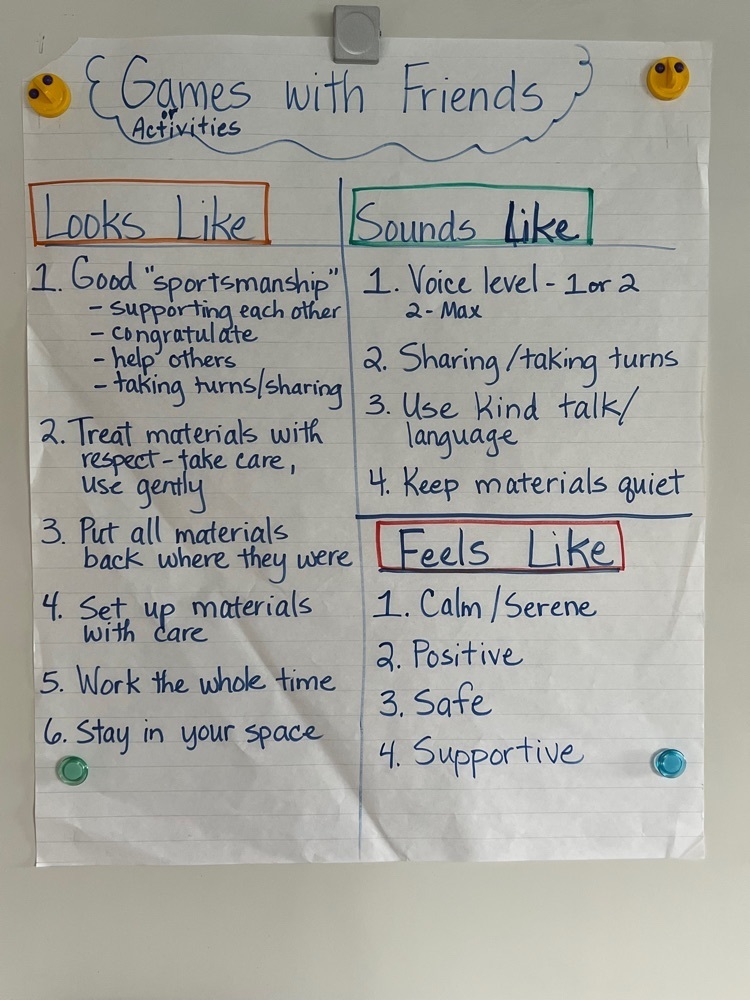 Games with Friends
or
Activities
Looks Like
1. Good "sportsmanship"
- supporting each other
- congratulate
- help others
- taking turns/sharing
2. Treat materials with
respect - take care,
use gently
3. Put all materials
back where they were
4. Set up materials
with care
5. Work the whole time
6. Stay in your space
Sounds Like
1. Voice level - 1 or 2
2 - Max
2. Sharing/taking turns
3. Use kind talk/
language
4. Keep materials quiet
Feels Like
1. Calm/Serene
2. Positive
3. Safe
4. Supportive